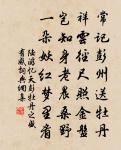 常记彭州送牡丹
祥云径尺照金盘
岂知身老农桑野
一朵妖红梦里看
陆游忆天彭牡丹之盛
有感词典网集